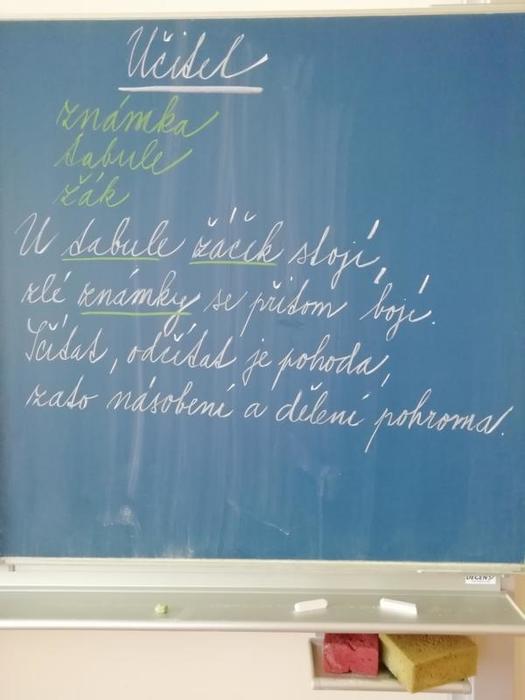 Učitel
známka
tabule
žák
U tabule žáček stojí,
zlé známky se přitom bojí.
Sčítat, odčítat je pohoda,
zato násobení a dělení pohroma.